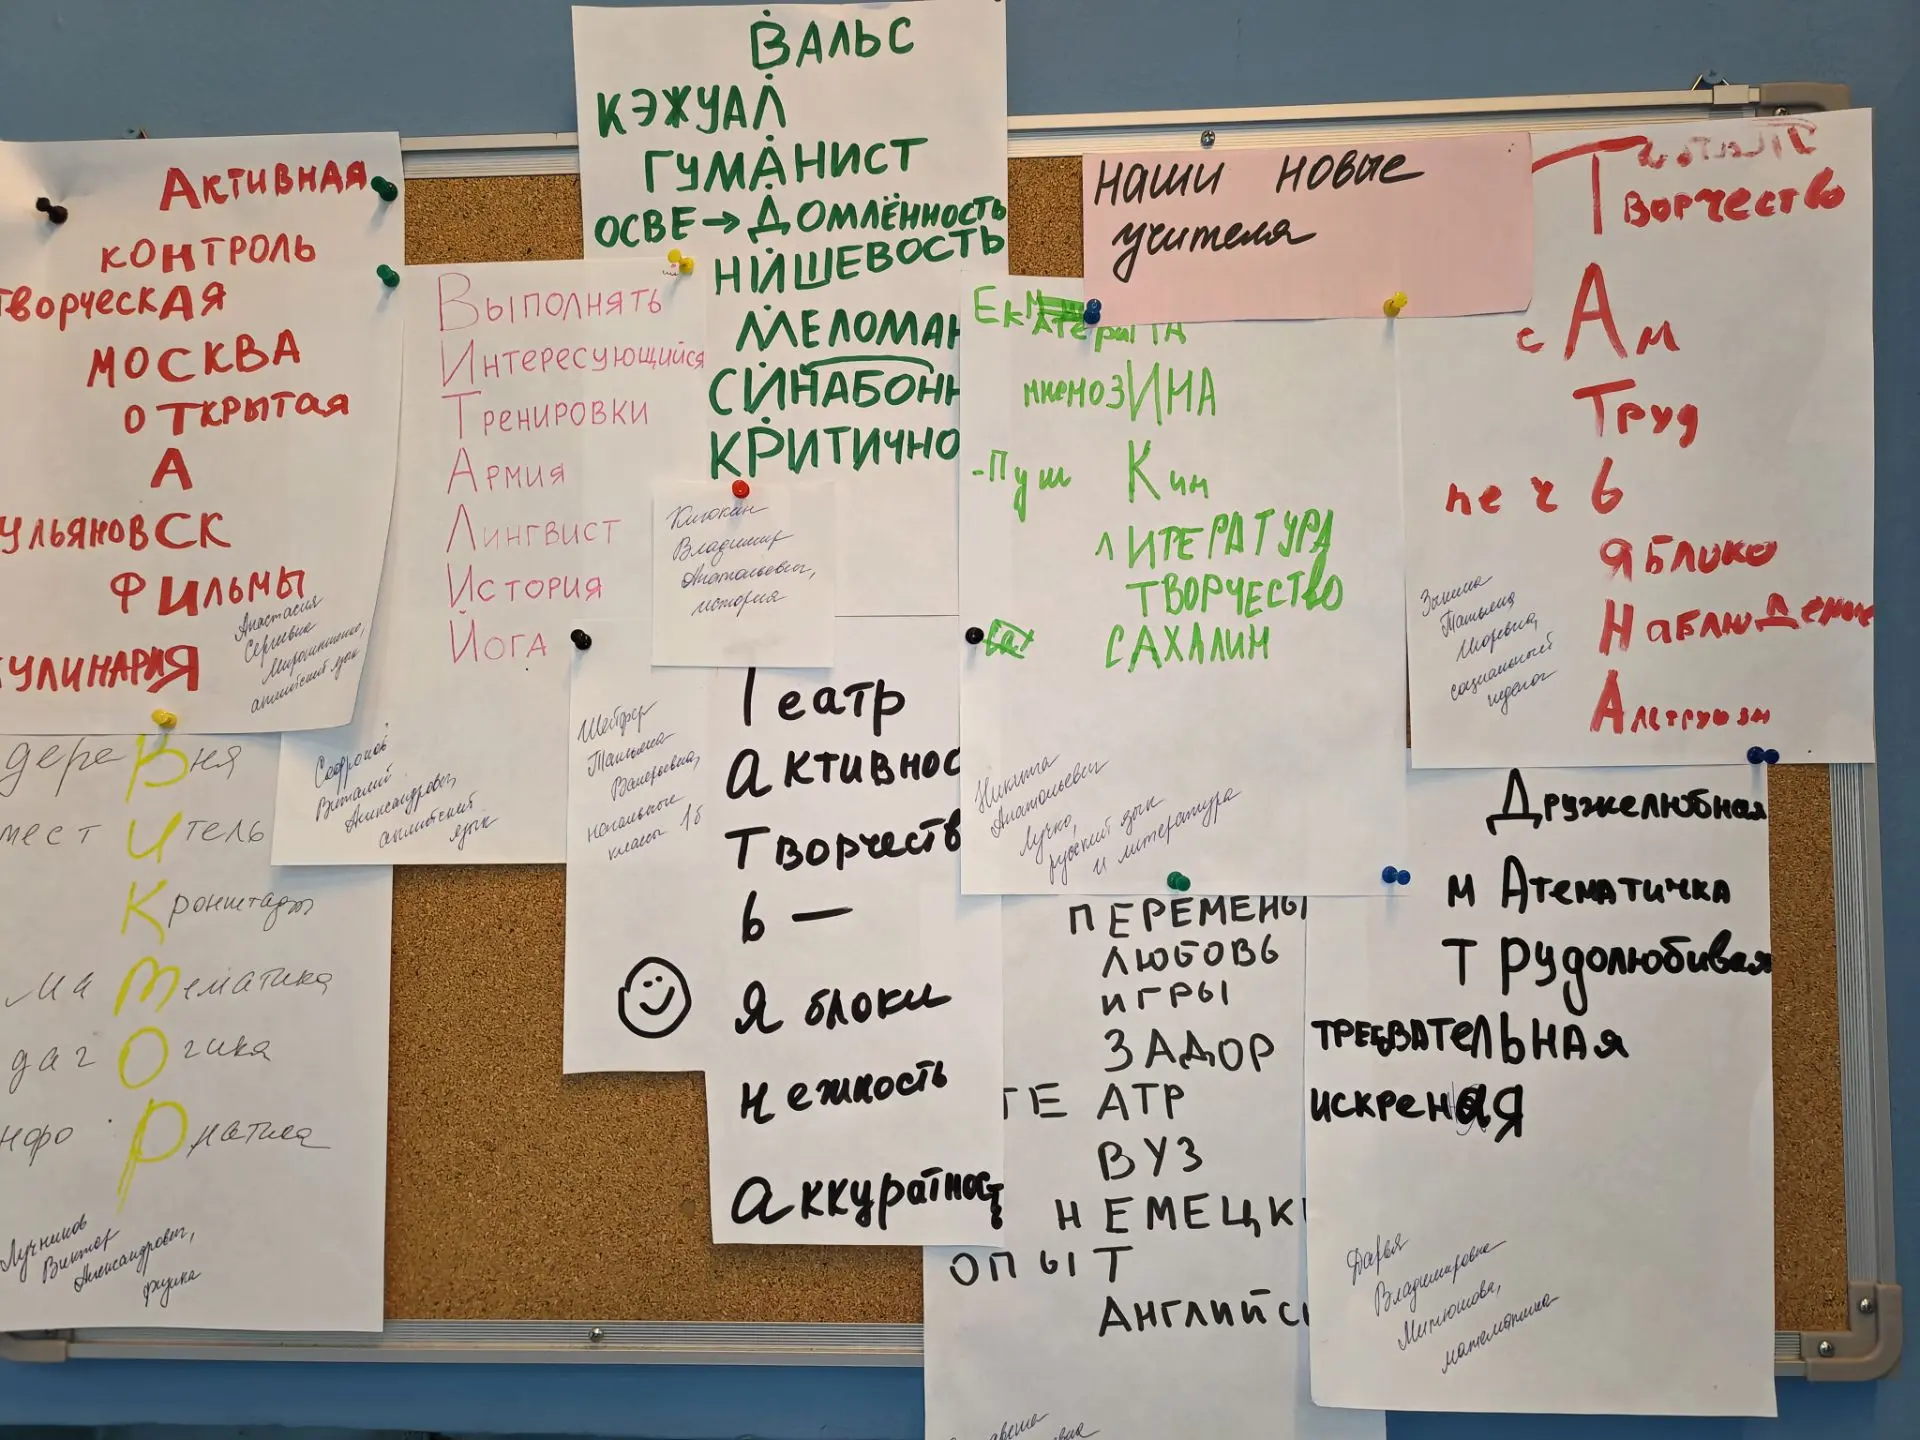 наши новые
учителя
АКТИВНАЯ
КОНТРОЛЬ
ТВОРЧЕСКАЯ
МОСКВА
ОТКРЫТАЯ
А
УЛЬЯНОВСК
ФИЛЬМЫ
КУЛИНАРИЯ
Анастасия
Сергеевна
английский язык
ВЫПОЛНЯТЬ
ИНТЕРЕСУЮЩИЙСЯ
ТРЕНИРОВКИ
АРМИЯ
ЛИНГВИСТ
ИСТОРИЯ
ЙОГА
Софронов
Виталий
Александрович,
английский
язык
ВАЛЬС
КЭЖУАЛ
ГУМАНИСТ
ОСВЕ → ДОМЛЁННОСТЬ
НИШЕВОСТЬ
МЕЛОМАН
СИНАБОНН
КРИТИЧНО
Владимир
Анатольевич,
история
ЕкАтерИНА
мнемоЗИНА
-Пуш Кин
ЛИТЕРАТУРА
ТВОРЧЕСТВО
Сах САХАЛИН
Никита
Анатольевич
Лучко,
русский язык
и литература
Творчество
сАм
Труд
печь
яблоко
Наблюдение
Альтруизм
Зыкина
Татьяна
Игоревна,
социальный
педагог
дереВня
мест Итель
Кронштадт
ма тематика
даг Огика
нфо Рматика
Лучников
Виктор
Александрович,
физика
Театр
активнос
Творчеств
ь —
Яблоки
нежность
аккуратность
Шейфер
Татьяна
Валерьевна,
начальные
классы 1б
ПЕРЕМЕНЫ
ЛЮБОВЬ
ИГРЫ
ЗАДОР
ТЕ АТР
ВУЗ
НЕМЕЦК
ОПЫТ
АНГЛИЙС
Дружелюбная
мАтематичка
Трудолюбивая
ТРЕБВАТЕЛЬНАЯ
ИСКРЕНАЯ
Дарья
Владимировна
Митюшова,
математика